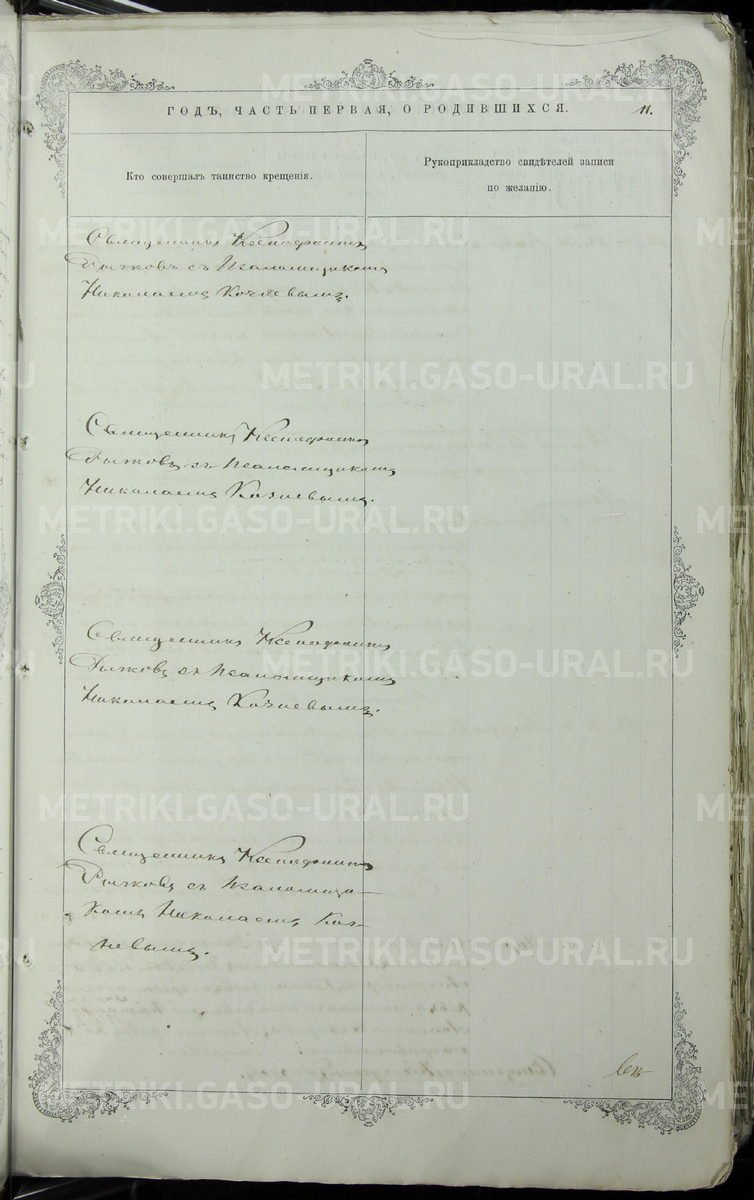 ГОДЪ, ЧАСТЬ ПЕРВАЯ, О РОДИВШИХСЯ. 11.
Кто совершалъ таинство крещенія.
Рукоприкладство свидѣтелей записи
по желанію.
Священникъ Ксенофонтъ
Рычковъ съ Псаломщикомъ
Николаемъ Кочневымъ.
Священникъ Ксенофонтъ
Рычковъ съ Псаломщикомъ
Николаемъ Кочневымъ.
Священникъ Ксенофонтъ
Рычковъ съ Псаломщикомъ
Николаемъ Кочневымъ.
Священникъ Ксенофонтъ
Рычковъ съ Псаломщи-
комъ Николаемъ Коч-
невымъ.
METRIKI.GASO-URAL.RU